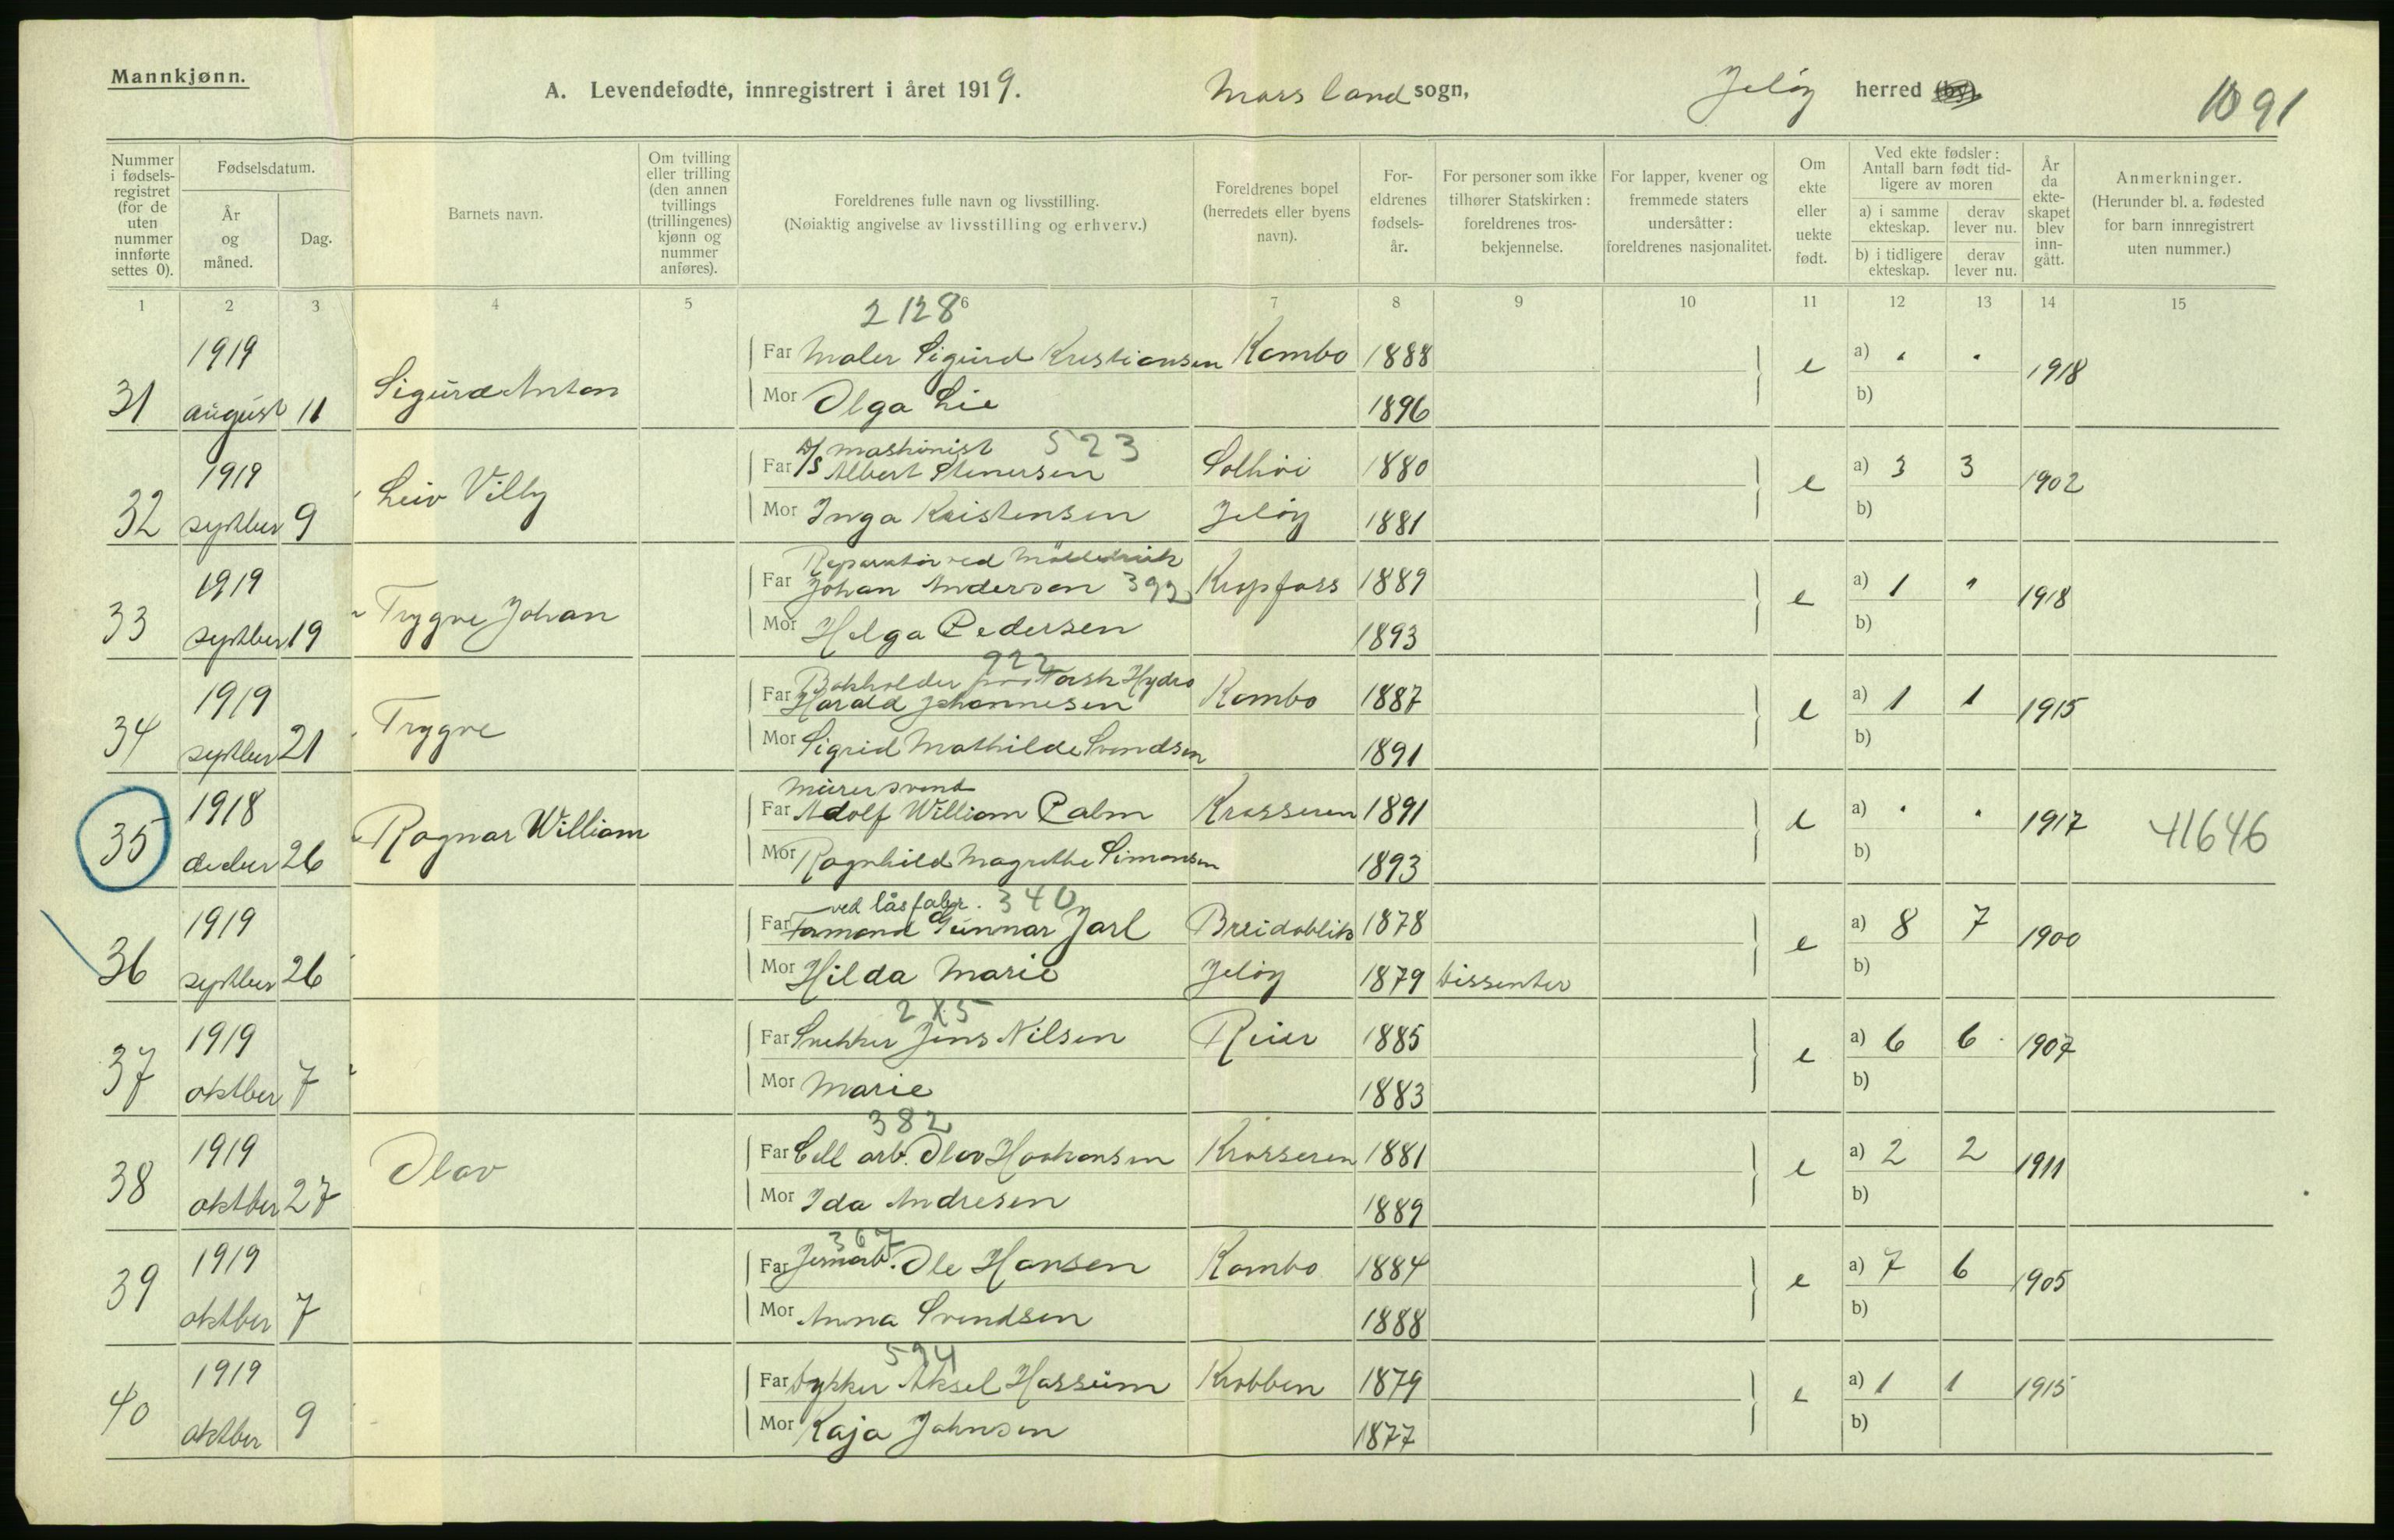 Mannkjønn.
A. Levendefødte, innregistrert i året 1919. Moss land sogn, Jeløy herred (by). 1091
Nummer i fødselsregistret (for de uten nummer innførte settes 0).
Fødselsdatum.
År og måned.
Dag.
Barnets navn.
Om tvilling eller trilling (den annen tvillings (trillingenes) kjønn og nummer anføres).
Foreldrenes fulle navn og livsstilling.
(Nøiaktig angivelse av livsstilling og erhverv.)
Foreldrenes bopel (herredets eller byens navn).
Foreldrenes fødselsår.
For personer som ikke tilhører Statskirken: foreldrenes trosbekjennelse.
For lapper, kvener og fremmede staters undersåtter: foreldrenes nasjonalitet.
Om ekte eller uekte født.
Ved ekte fødsler: Antall barn født tidligere av moren
a) i samme ekteskap.
derav lever nu.
b) i tidligere ekteskap.
derav lever nu.
År da ekteskapet blev inngått.
Anmerkninger.
(Herunder bl. a. fødested for barn innregistrert uten nummer.)
1 2 3 4 5 6 7 8 9 10 11 12 13 14 15
2128
31 1919 august 11 Sigurd Anton
Far Maler Sigurd Kristiansen Kambo 1888 e a) " " 1918
Mor Olga Lie 1896 b)
32 1919 septber 9 Leiv Villy
D/S maskinist 523
Far Albert Stenersen Solhøi 1880 e a) 3 3 1902
Mor Inga Kristensen Jeløy 1881 b)
33 1919 septber 19 Trygve Johan
Reparatør ved
Far Johan Anderson 392 Krapfoss 1889 e a) 1 " 1918
Mor Helga Pedersen 1893 b)
34 1919 septber 21 Trygve
922
Bokholder Norsk Hydro
Far Harald Johannesen Kambo 1887 e a) 1 1 1915
Mor Sigrid Mathilde Svendsen 1891 b)
35 1918 decber 26 Ragnar William
Murersvend
Far Adolf William Palm Krosseren 1891 e a) " " 1917 41646
Mor Ragnhild Magrethe Simonsen 1893 b)
36 1919 septber 26
ved låsfabr. 340
Far Formand Gunnar Jarl Breidablik 1878 e a) 8 7 1900
Mor Hilda Marie Jeløy 1879 Dissenter b)
37 1919 oktber 7
285
Far Snekker Jens Nilsen Reier 1885 e a) 6 6 1907
Mor Marie 1883 b)
38 1919 oktber 27 Olav
382
Far Cell arb. Olav Haakonsen Krosseren 1881 e a) 2 2 1911
Mor Ida Andresen 1889 b)
39 1919 oktber 7
367
Far Jernarb. Ole Hansen Kambo 1884 e a) 7 6 1905
Mor Anna Svendsen 1888 b)
40 1919 oktber 9
594
Far Dykker Aksel Hassum Krabben 1879 e a) 1 1 1915
Mor Kaja Johnsen 1877 b)